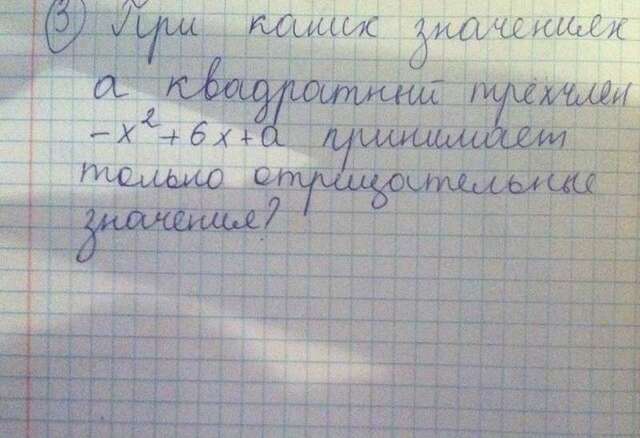 3 При каких значениях
а квадратный трёхчлен
-x²+6x+a принимает
только отрицательные
значения?